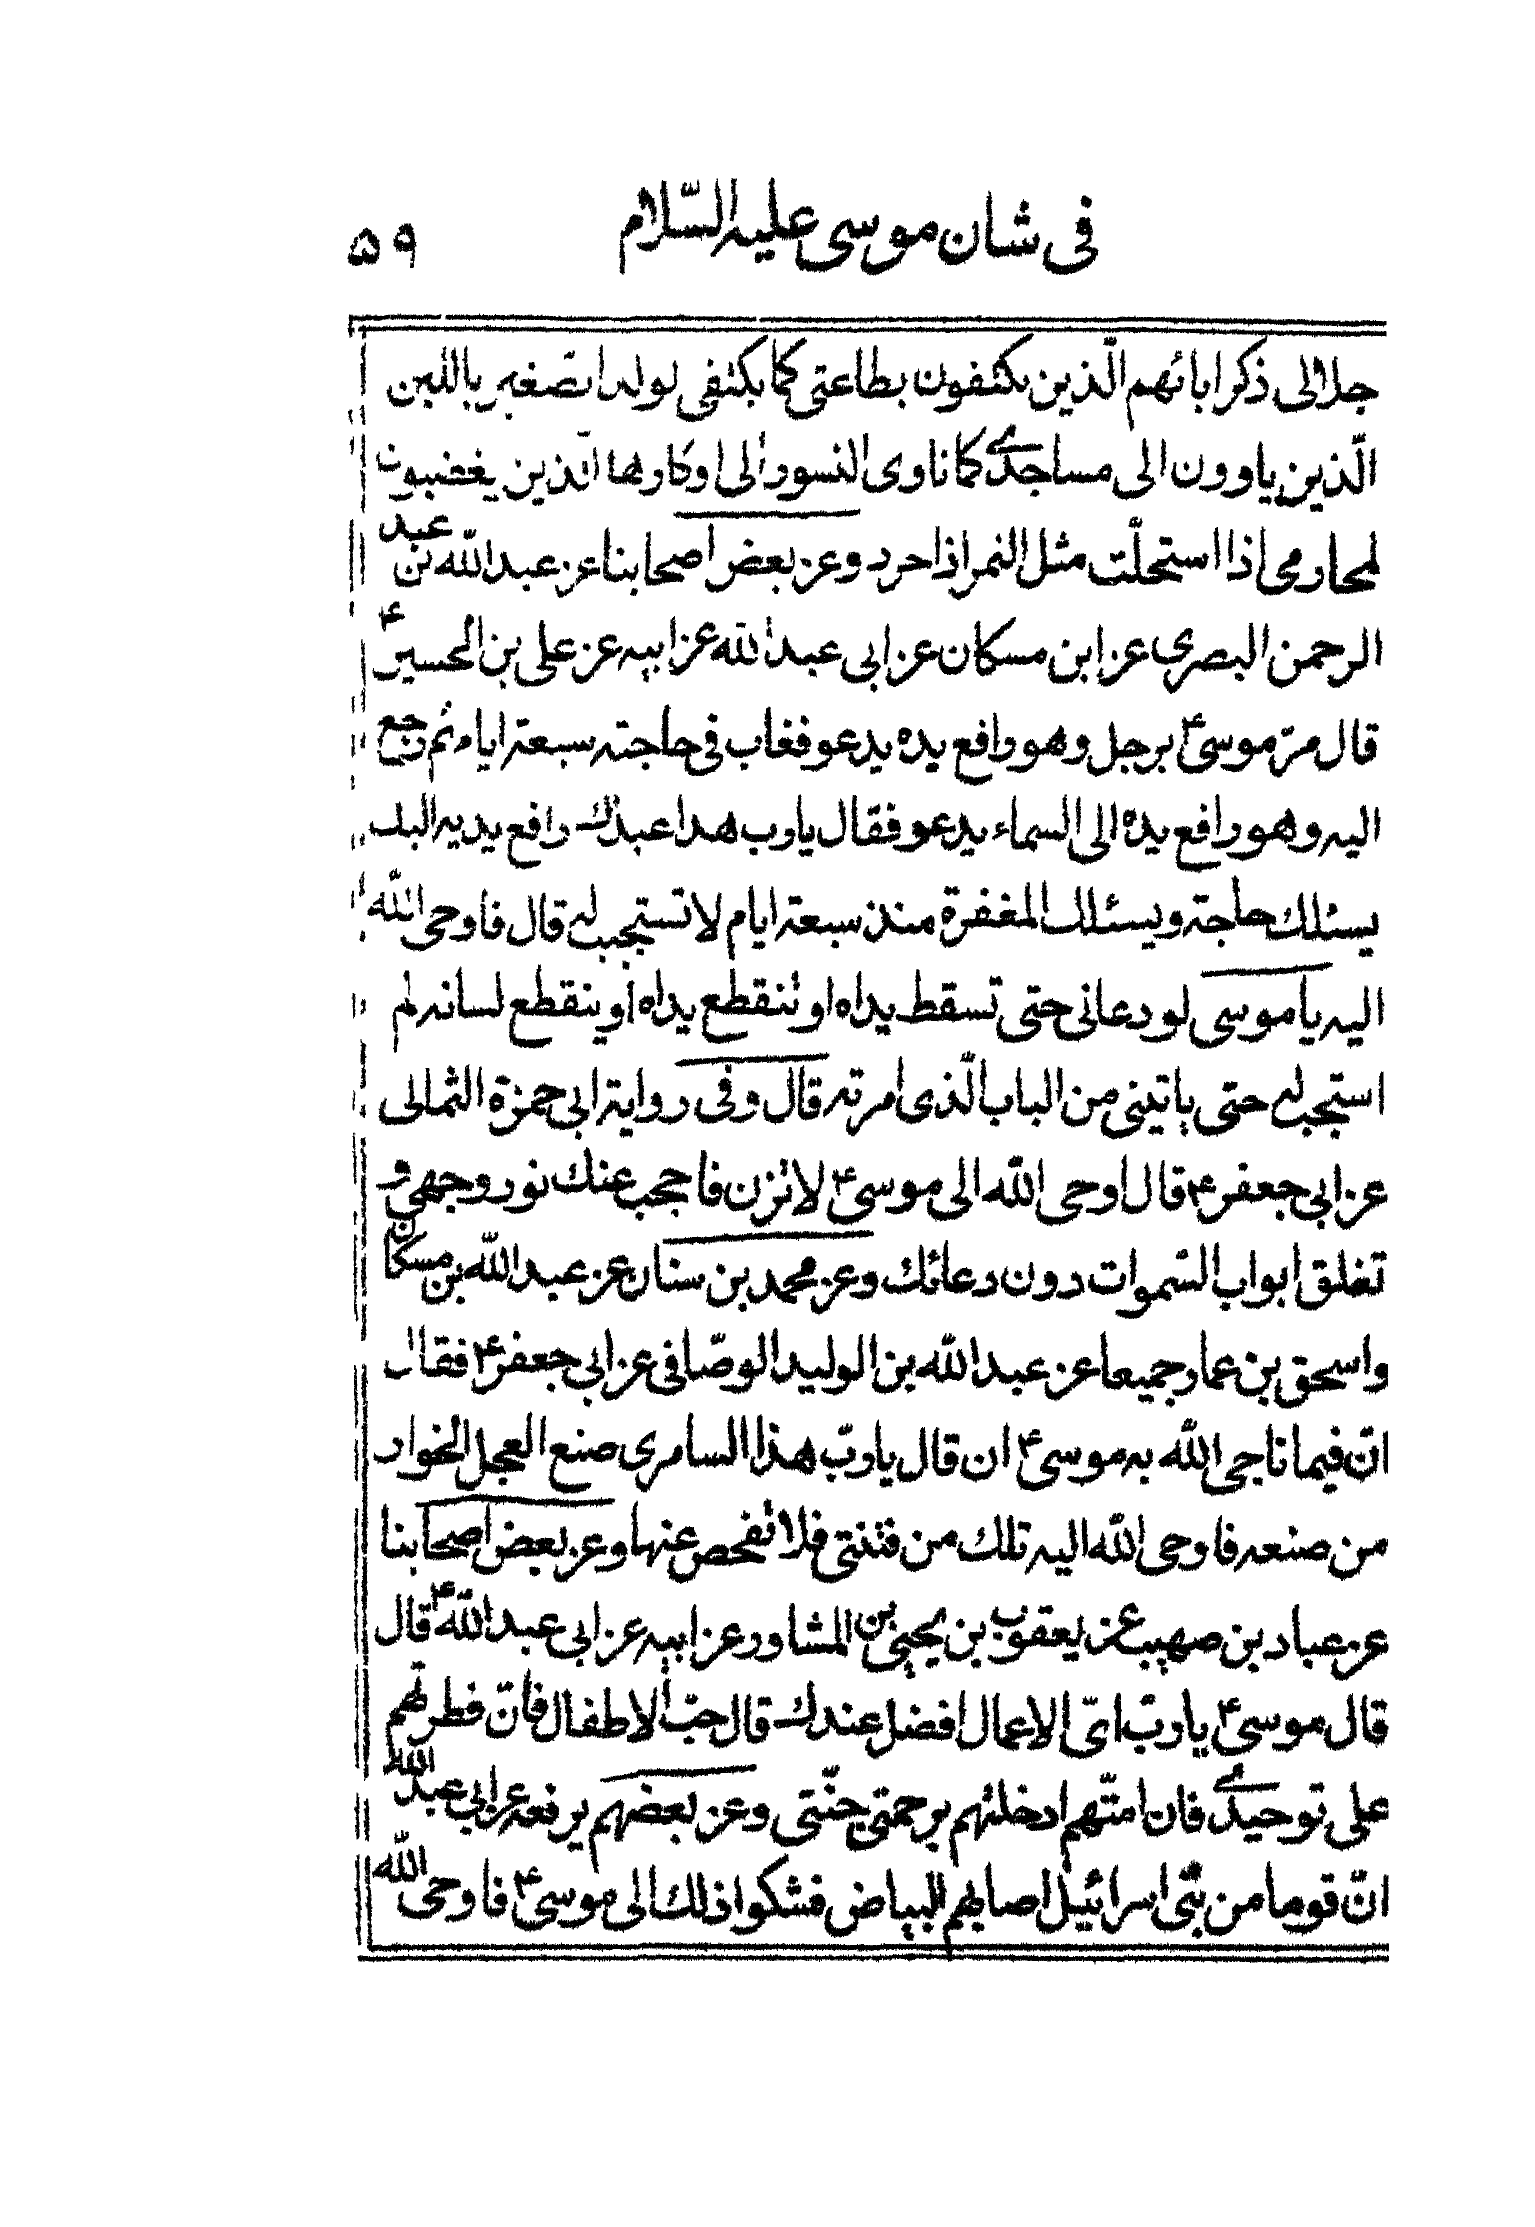 في شان موسى عليه السّلام ۵۹
جلالى ذكر ابائهم الّذين يكتفون بطاعتى كما يكتفى لولد الصغير باللبن
الّذين ياوون الى مساجدى كما تاوى النسور الى اوكارها الّذين يغضبون
لمحارمى اذا استحلّت مثل النمر اذا حرد وعن بعض اصحابنا عن عبد الله بن عبد
الرحمن البصرى عن ابن مسكان عن ابى عبد الله عن ابيه عن على بن الحسين ع
قال مرّ موسى ع برجل وهو رافع يده يدعو فغاب فى حاجته سبعة ايام ثم رجع
اليه وهو رافع يده الى السماء يدعو فقال يا رب هذا عبدك رافع يديه اليك
يسئلك حاجته ويسئلك المغفرة منذ سبعة ايام لا تستجيب له قال فاوحى الله
اليه يا موسى لو دعانى حتى تسقط يداه او تنقطع يداه او ينقطع لسانه لم
استجب له حتى ياتينى من الباب الّذى امرته قال وفى رواية ابى حمزة الثمالى
عن ابى جعفر ع قال اوحى الله الى موسى ع لا تزن فاحجب عنك نور وجهى و
تغلق ابواب السّموات دون دعائك وعن محمد بن سنان عن عبد الله بن مسكان
واسحق بن عمار جميعا عن عبد الله بن الوليد الوصّافى عن ابى جعفر ع فقال
انّ فيما ناجى الله به موسى ع ان قال يا ربّ هذا السامرى صنع العجل الخوار
من صنعه فاوحى الله اليه تلك من فتنتى فلا تفحص عنها وعن بعض اصحابنا
عن عباد بن صهيب عن يعقوب بن يحيى بن المشاور عن ابيه عن ابى عبد الله ع قال
قال موسى ع يا ربّ اىّ الاعمال افضل عندك قال حبّ الاطفال فانّ فطرتهم
على توحيدى فان امتّهم ادخلتهم برحمتى جنّتى وعن بعضهم يرفعه عن ابى عبد الله
انّ قوما من بنى اسرائيل اصابهم البياض فشكوا ذلك الى موسى ع فاوحى الله